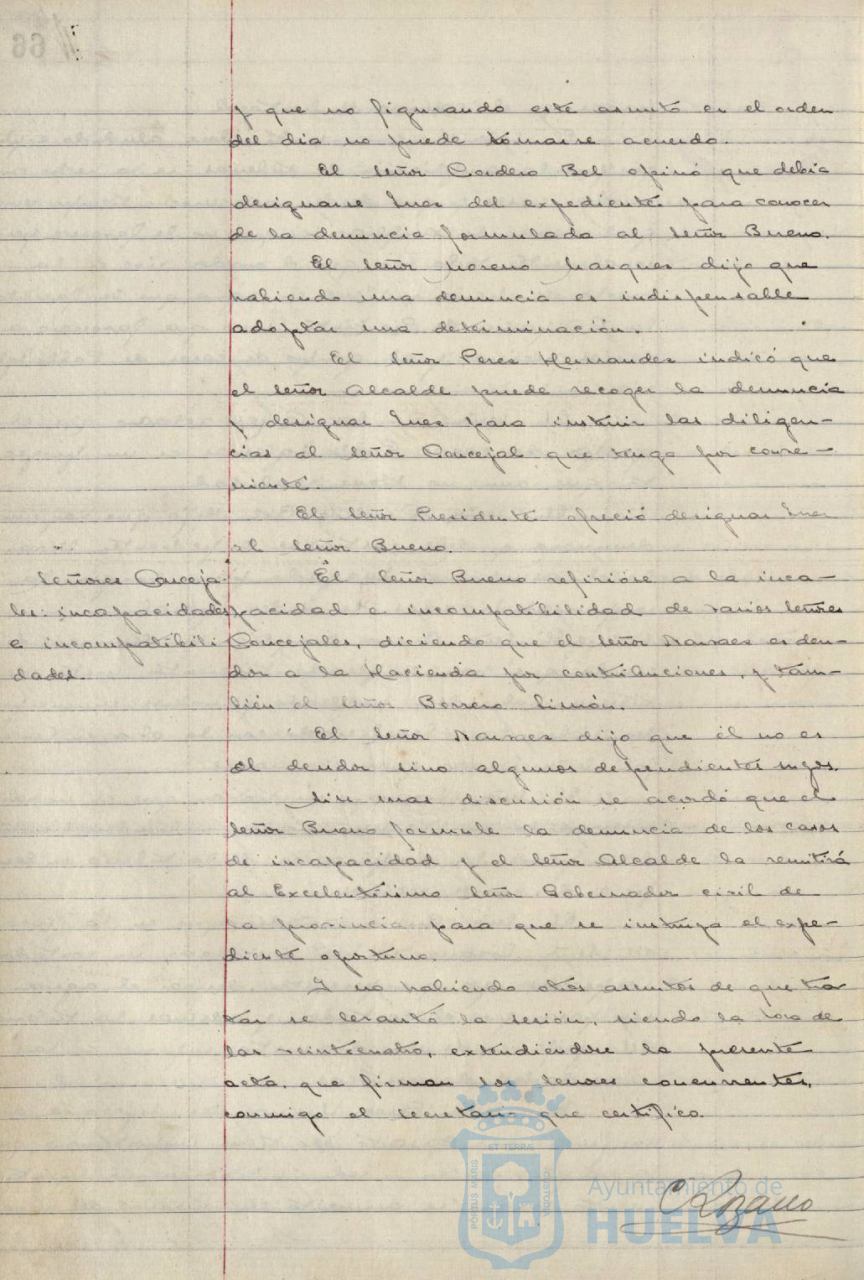 y que no figurando este asunto en el orden
del dia no puede tomarse acuerdo.
El señor Cordero Bel opinó que debia
designarse Juez del expediente para conocer
de la denuncia formulada al señor Bueno.
El señor Moreno Marquez dijo que
habiendo una denuncia es indispensable
adoptar una determinación.
El señor Perez Hernandez indicó que
el señor Alcalde puede recoger la denuncia
y designar Juez para instruir las diligen-
cias al señor Concejal que tenga por conve-
niente.
El señor Presidente ofreció designar Juez
al señor Bueno.
Señores Conceja-
les: incapacidades
e incompatibili
dades.
El señor Bueno refirióse a la inca-
pacidad e incompatibilidad de varios señores
Concejales, diciendo que el señor Narvaez es deu-
dor a la Hacienda por contribuciones, y tam-
bién el señor Borrero Limón.
El señor Narvaez dijo que él no es
el deudor sino algunos dependientes suyos.
Sin mas discusión se acordó que el
señor Bueno formule la denuncia de los casos
de incapacidad y el señor Alcalde la remitirá
al Excelentísimo señor Gobernador civil de
la provincia para que se instruya el expe-
diente oportuno.
Y no habiendo otros asuntos de que tra-
tar se levantó la sesión, siendo la hora de
las veinticuatro, extendiéndose la presente
acta, que firman los señores concurrentes,
conmigo el secretario que certifico.
PORTUS MARIS ET TERRAE CUSTODIA
Ayuntamiento de
HUELVA